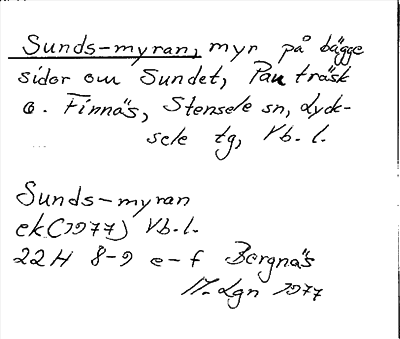 Sunds-myran, myr på bägge
sidor om Sundet, Pauträsk
o. Finnäs, Stensele sn, Lyck-
sele tg, Vb. l.
Sunds-myran
ek (1977) Vb. l.
22H 8-9 e-f Bergnäs
17. Lgn 1977